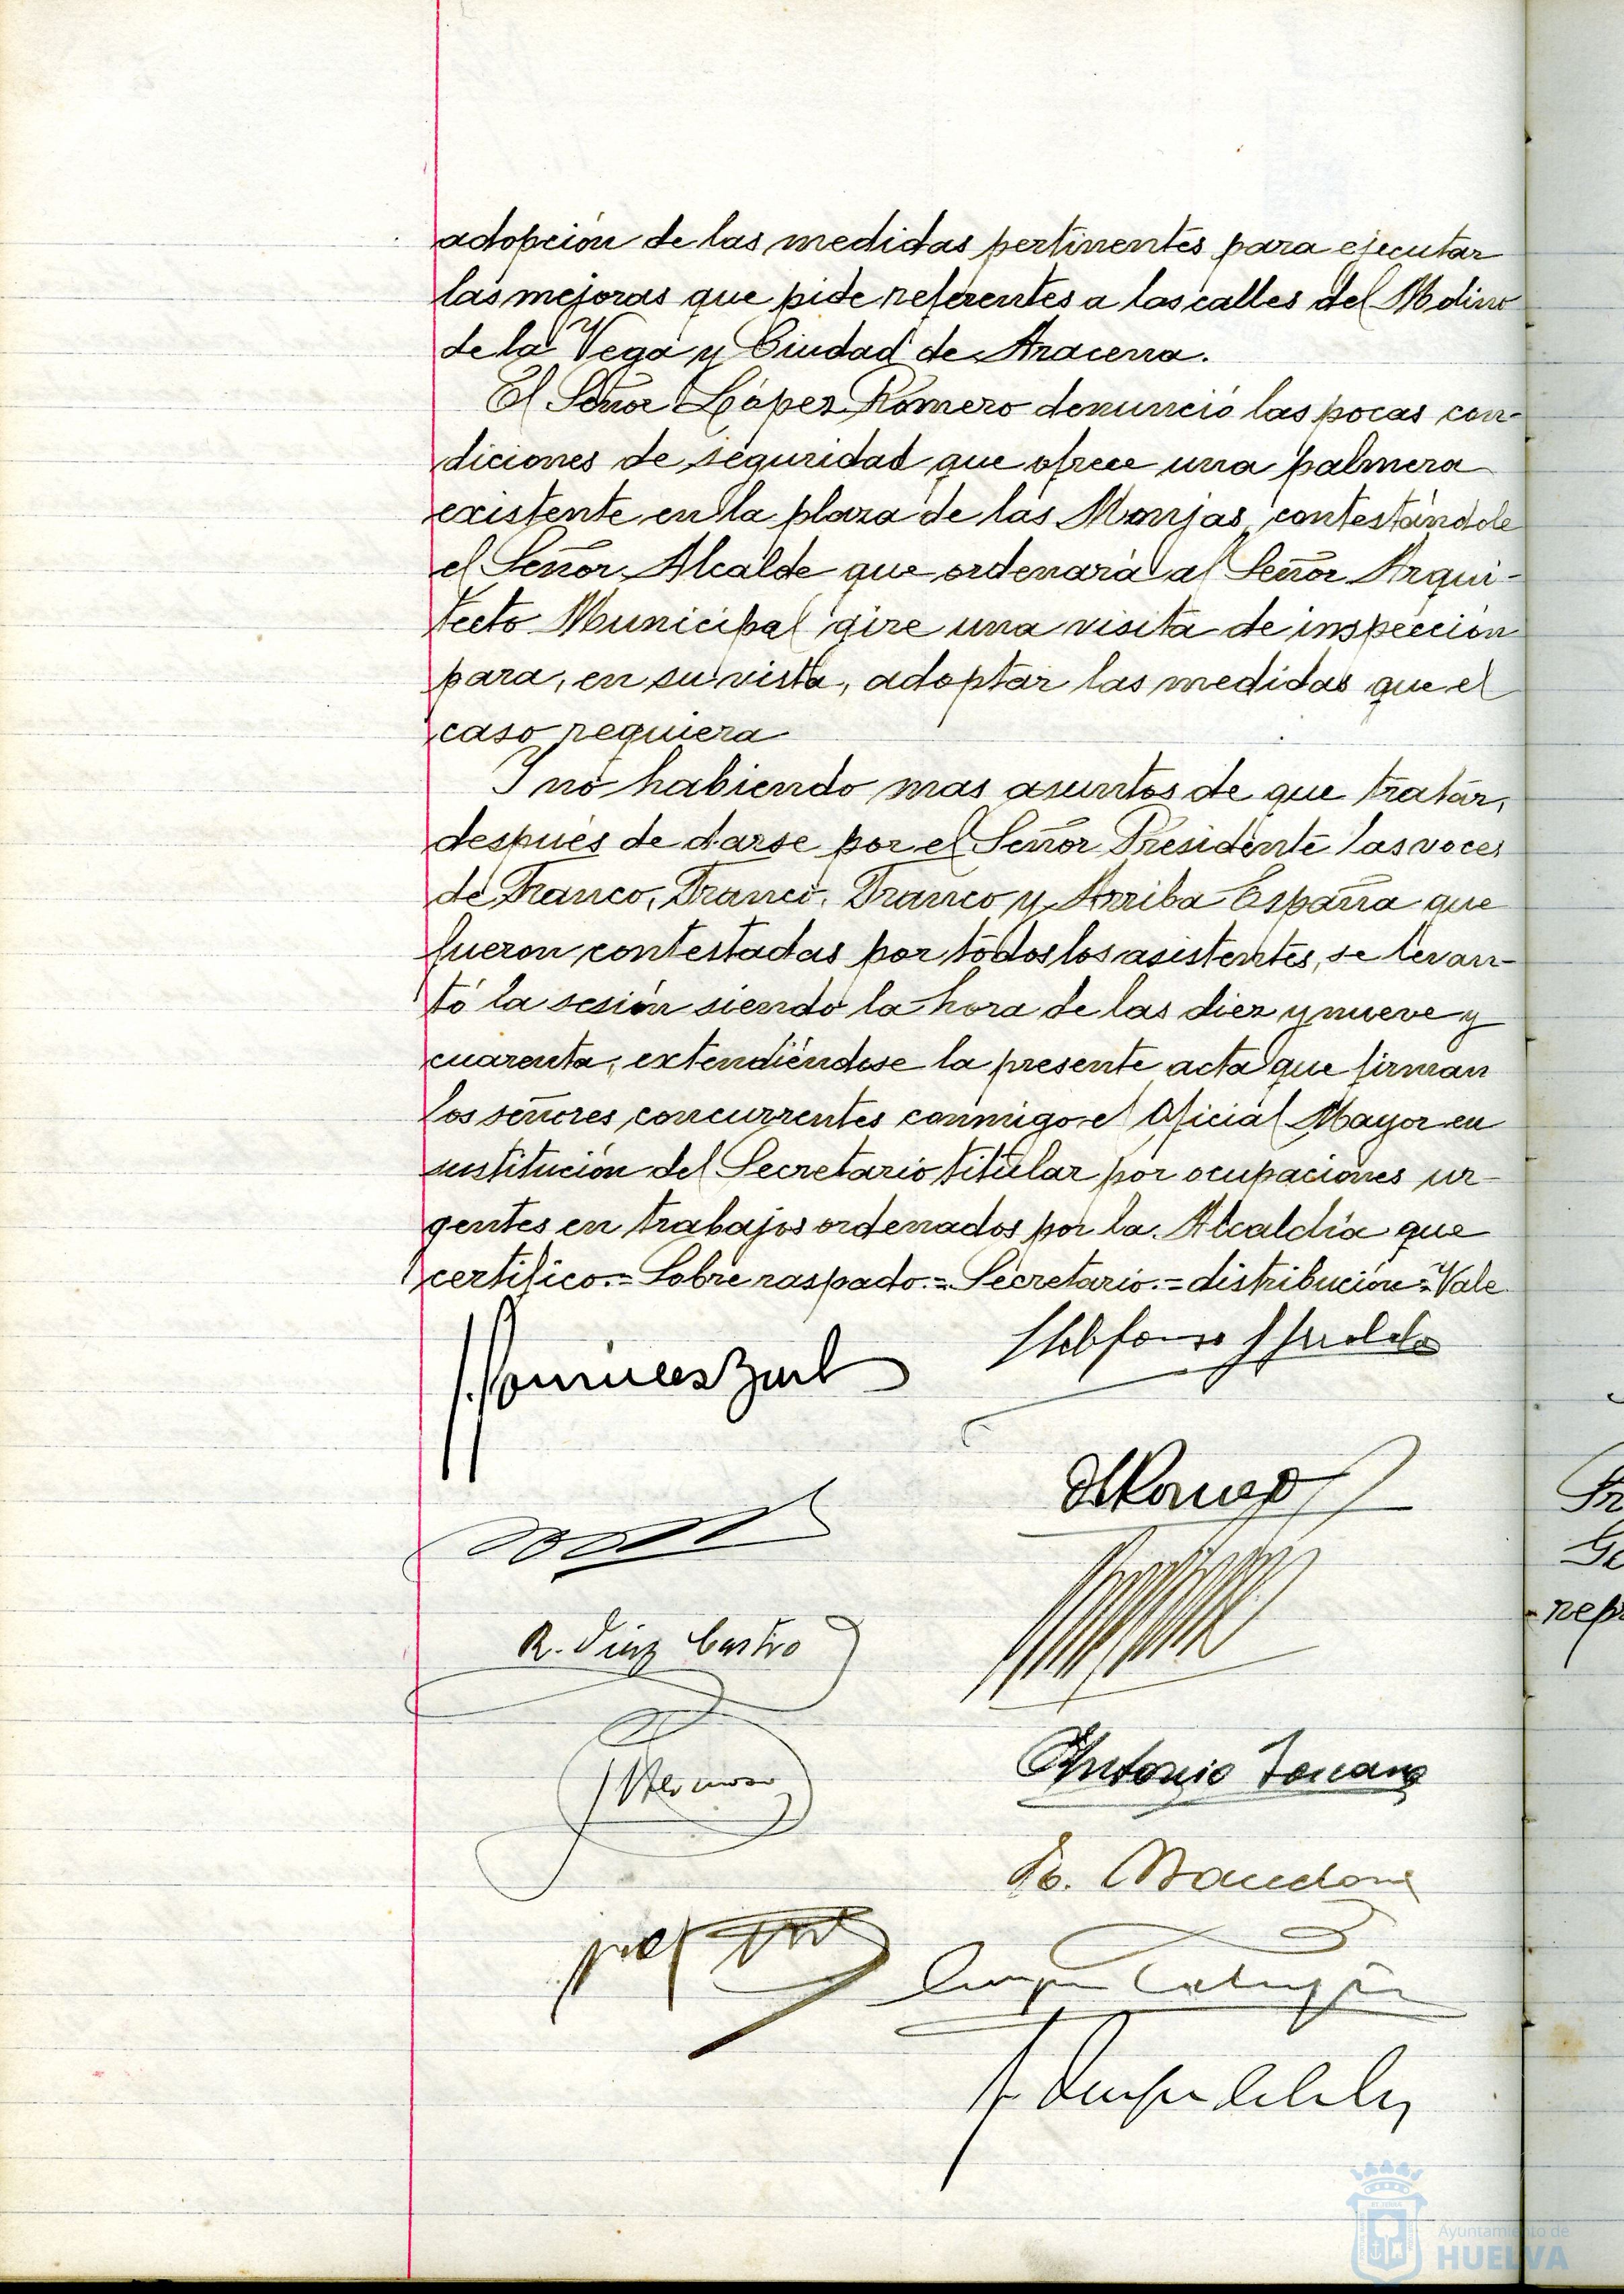 adopción de las medidas pertinentes para ejecutar
las mejoras que pide referentes a las calles del Molino
de la Vega y Ciudad de Aracena.
El Señor López Romero denunció las pocas con-
diciones de seguridad que ofrece una palmera
existente en la plaza de las Monjas, contestándole
el Señor Alcalde que ordenará al Señor Arqui-
tecto Municipal gire una visita de inspección
para, en su vista, adoptar las medidas que el
caso requiera
Y no habiendo mas asuntos de que tratar,
después de darse por el Señor Presidente las voces
de Franco, Franco, Franco y Arriba España que
fueron contestadas por todos los asistentes, se levan-
tó la sesión siendo la hora de las diez y nueve y
cuarenta, extendiéndose la presente acta que firman
los señores concurrentes conmigo el Oficial Mayor en
sustitución del Secretario titular por ocupaciones ur-
gentes en trabajos ordenados por la Alcaldía que
certifico.= Sobre raspado.= Secretario.= distribución = Vale
R. Diaz Castro
Antonio
Ayuntamiento de
HUELVA